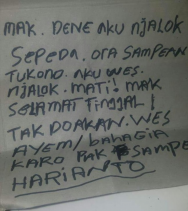 MAK. DENE AKU NJALOK
SEPEDA. ORA SAMPEAN
TUKONO. AKU WES.
NJALOK. MATI! MAK
SELAMAT TINGGAL!
TAK DOAKAN. WES
AYEM/BAHAGIA
KARO PAK SAMPE
HARIANTO